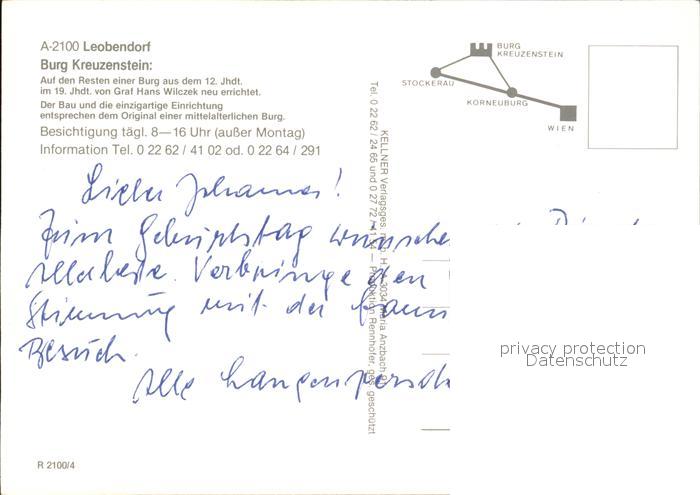 A-2100 Leobendorf
Burg Kreuzenstein:
Auf den Resten einer Burg aus dem 12. Jhdt.
im 19. Jhdt. von Graf Hans Wilczek neu errichtet.
Der Bau und die einzigartige Einrichtung
entsprechen dem Original einer mittelalterlichen Burg.
Besichtigung tägl. 8—16 Uhr (außer Montag)
Information Tel. 0 22 62 / 41 02 od. 0 22 64 / 291
BURG
KREUZENSTEIN
STOCKERAU
KORNEUBURG
WIEN
KELLNER Verlagsges. m.b.H., 3034 Maria Anzbach
Tel. 0 22 62 / 24 65 und 0 27 72 / — Produktion Rennhofer, ges. geschützt
Lieber Johannes!
Zum Geburtstag wünsche
Allerbeste. Verbringe den
Stimmung mit der
Besuch.
Alle
privacy protection
Datenschutz
R 2100/4